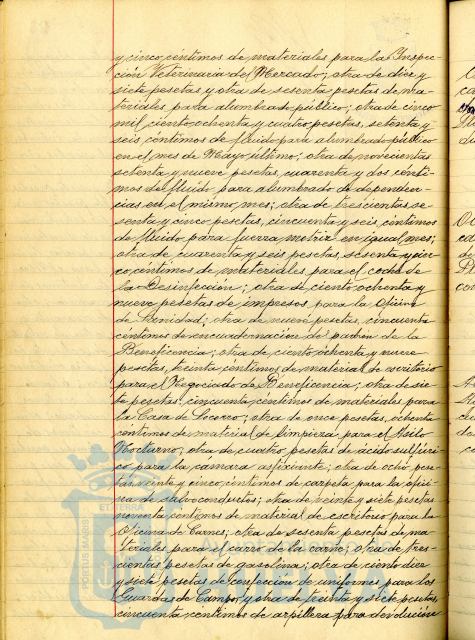 y cinco céntimos de materiales para la Inspec-
ción Veterinaria del Mercado; otra de diez y
siete pesetas y otra de sesenta pesetas de ma-
teriales para alumbrado público; otra de cinco
mil ciento ochenta y cuatro pesetas, setenta y
seis céntimos de fluido para alumbrado público
en el mes de Mayo último; otra de novecientas
setenta y nueve pesetas, cuarenta y dos cénti-
mos de fluido para alumbrado de dependen-
cias en el mismo mes; otra de trescientas se-
senta y cinco pesetas, cincuenta y seis céntimos
de fluido para fuerza motriz en igual mes;
otra de cuarenta y seis pesetas, sesenta y cin-
co céntimos de materiales para el coche de
la Desinfección; otra de ciento ochenta y
nueve pesetas de impresos para la Oficina
de Sanidad; otra de nueve pesetas, cincuenta
céntimos de encuadernación del padrón de la
Beneficencia; otra de ciento ochenta y nueve
pesetas, treinta céntimos de material de escritorio
para el Negociado de Beneficencia; otra de sie-
te pesetas, cincuenta céntimos de materiales para
la Casa de Socorro; otra de once pesetas, ochenta
céntimos de material de limpieza para el Asilo
Nocturno; otra de cuatro pesetas de ácido sulfúri-
co para la cámara asfixiante; otra de ocho pese-
tas, veinte y cinco céntimos de carpeta para la ofici-
na de salvoconductos; otra de veinte y siete pesetas
noventa céntimos de material de escritorio para la
Oficina de Carnes; otra de sesenta pesetas de ma-
teriales para el carro de la carne; otra de tres-
cientas pesetas de gasolina; otra de ciento diez
y siete pesetas de confección de uniformes para los
Guardas de Campo, y otra de treinta y siete pesetas,
cincuenta céntimos de arpillera para devolución
ET TERRA
PORTUS MAGNUS